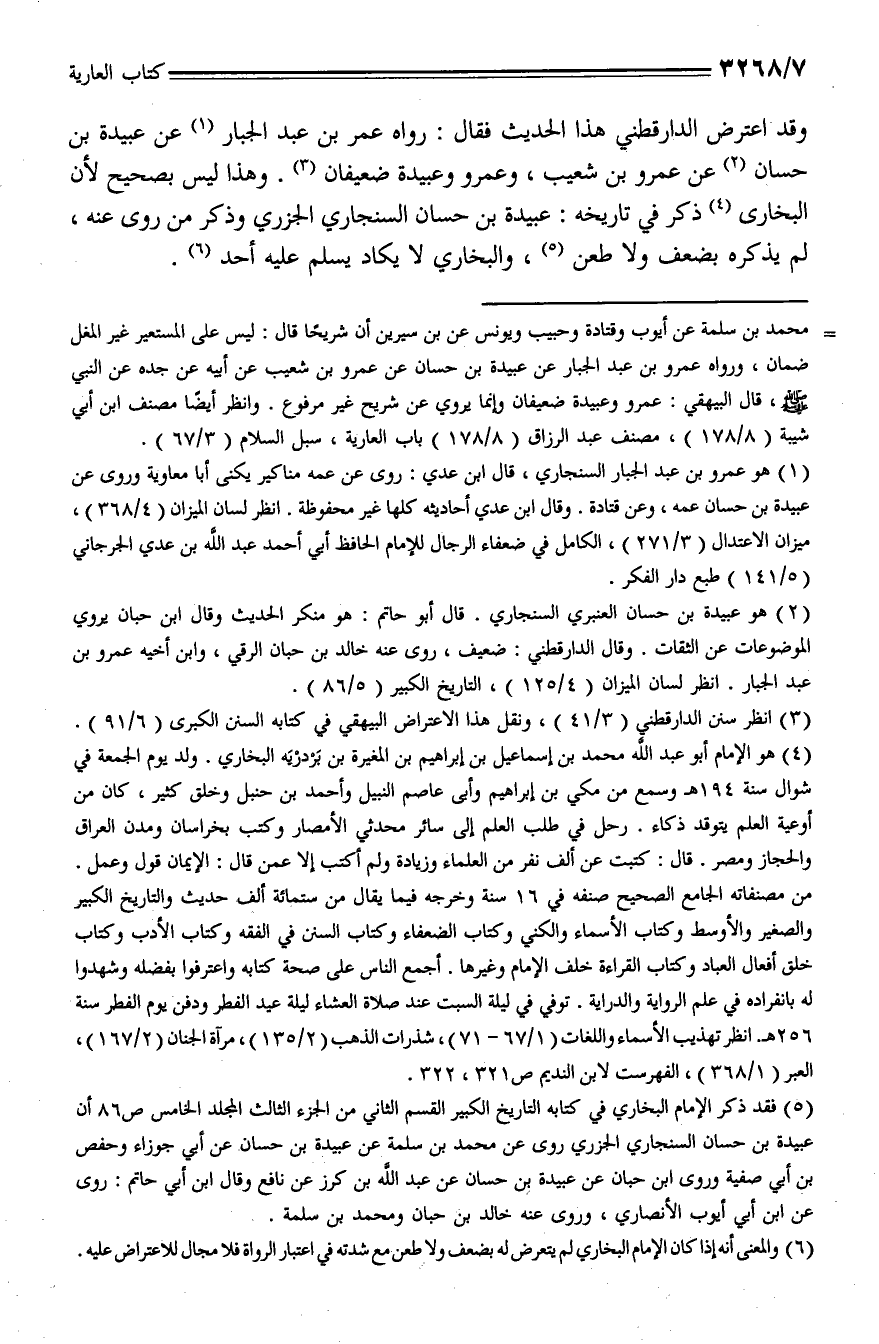 ٣٢٦٨/٧ كتاب العارية
وقد اعترض الدارقطني هذا الحديث فقال : رواه عمر بن عبد الجبار (١) عن عبيدة بن
حسان (٢) عن عمرو بن شعيب ، وعمرو وعبيدة ضعيفان (٣) . وهذا ليس بصحيح لأن
البخارى (٤) ذكر في تاريخه : عبيدة بن حسان السنجاري الجزري وذكر من روى عنه ،
لم يذكره بضعف ولا طعن (٥) ، والبخاري لا يكاد يسلم عليه أحد (٦) .
= محمد بن سلمة عن أيوب وقتادة وحبيب ويونس عن بن سيرين أن شريحًا قال : ليس على المستعير غير المغل
ضمان ، ورواه عمرو بن عبد الجبار عن عبيدة بن حسان عن عمرو بن شعيب عن أبيه عن جده عن النبي
ﷺ ، قال البيهقي : عمرو وعبيدة ضعيفان وإنما يروي عن شريح غير مرفوع . وانظر أيضًا مصنف ابن أبي
شيبة ( ١٧٨/٨ ) ، مصنف عبد الرزاق ( ١٧٨/٨ ) باب العارية ، سبل السلام ( ٦٧/٣ ) .
(١) هو عمرو بن عبد الجبار السنجاري ، قال ابن عدي : روى عن عمه مناكير يكنى أبا معاوية وروى عن
عبيدة بن حسان عمه ، وعن قتادة . وقال ابن عدي أحاديثه كلها غير محفوظة . انظر لسان الميزان ( ٣٦٨/٤ ) ،
ميزان الاعتدال ( ٢٧١/٣ ) ، الكامل في ضعفاء الرجال للإمام الحافظ أبي أحمد عبد اللَّه بن عدي الجرجاني
( ١٤١/٥ ) طبع دار الفكر .
(٢) هو عبيدة بن حسان العنبري السنجاري . قال أبو حاتم : هو منكر الحديث وقال ابن حبان يروي
الموضوعات عن الثقات . وقال الدارقطني : ضعيف ، روى عنه خالد بن حبان الرقي ، وابن أخيه عمرو بن
عبد الجبار . انظر لسان الميزان ( ١٢٥/٤ ) ، التاريخ الكبير ( ٨٦/٥ ) .
(٣) انظر سنن الدارقطني ( ٤١/٣ ) ، ونقل هذا الاعتراض البيهقي في كتابه السنن الكبرى ( ٩١/٦ ) .
(٤) هو الإمام أبو عبد اللَّه محمد بن إسماعيل بن إبراهيم بن المغيرة بن بَرْدزْبَه البخاري . ولد يوم الجمعة في
شوال سنة ١٩٤هـ وسمع من مكي بن إبراهيم وأبى عاصم النبيل وأحمد بن حنبل وخلق كثير ، كان من
أوعية العلم يتوقد ذكاء . رحل في طلب العلم إلى سائر محدثي الأمصار وكتب بخراسان ومدن العراق
والحجاز ومصر . قال : كتبت عن ألف نفر من العلماء وزيادة ولم أكتب إلا عمن قال : الإيمان قول وعمل .
من مصنفاته الجامع الصحيح صنفه في ١٦ سنة وخرجه فيما يقال من ستمائة ألف حديث والتاريخ الكبير
والصغير والأوسط وكتاب الأسماء والكني وكتاب الضعفاء وكتاب السنن في الفقه وكتاب الأدب وكتاب
خلق أفعال العباد وكتاب القراءة خلف الإمام وغيرها . أجمع الناس على صحة كتابه واعترفوا بفضله وشهدوا
له بانفراده في علم الرواية والدراية . توفي في ليلة السبت عند صلاة العشاء ليلة عيد الفطر ودفن يوم الفطر سنة
٢٥٦هـ. انظر تهذيب الأسماء واللغات ( ٦٧/١ - ٧١ ) ، شذرات الذهب ( ١٣٥/٢ ) ، مرآة الجنان ( ١٦٧/٢ ) ،
العبر ( ٣٦٨/١ ) ، الفهرست لابن النديم ص٣٢١ ، ٣٢٢ .
(٥) فقد ذكر الإمام البخاري في كتابه التاريخ الكبير القسم الثاني من الجزء الثالث المجلد الخامس ص٨٦ أن
عبيدة بن حسان السنجاري الجزري روى عن محمد بن سلمة عن عبيدة بن حسان عن أبي جوزاء وحفص
بن أبي صفية وروى ابن حبان عن عبيدة بن حسان عن عبد اللَّه بن كرز عن نافع وقال ابن أبي حاتم : روى
عن ابن أبي أيوب الأنصاري ، وروى عنه خالد بن حبان ومحمد بن سلمة .
(٦) والمعنى أنه إذا كان الإمام البخاري لم يتعرض له بضعف ولا طعن مع شدته في اعتبار الرواة فلا مجال للاعتراض عليه .